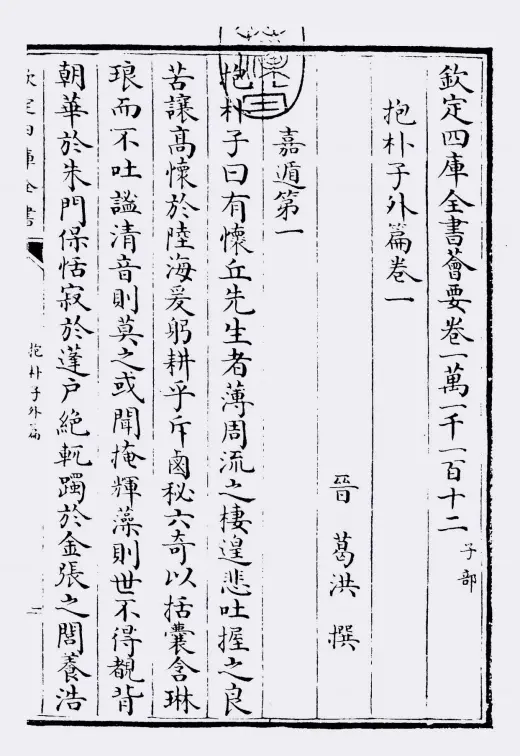 欽定四庫全書薈要卷一萬一千一百十二 子部
抱朴子外篇卷一
晉 葛洪 撰
嘉遁第一
抱朴子曰有懷丘先生者薄周流之棲遑悲吐握之良
苦讓髙懷於陸海爰躬耕乎斥鹵秘六奇以括囊含琳
琅而不吐謐清音則莫之或聞掩輝藻則世不得覩背
朝華於朱門保恬寂於蓬戸絶軏躅於金張之閭養浩
欽定四庫全書
抱朴子外篇